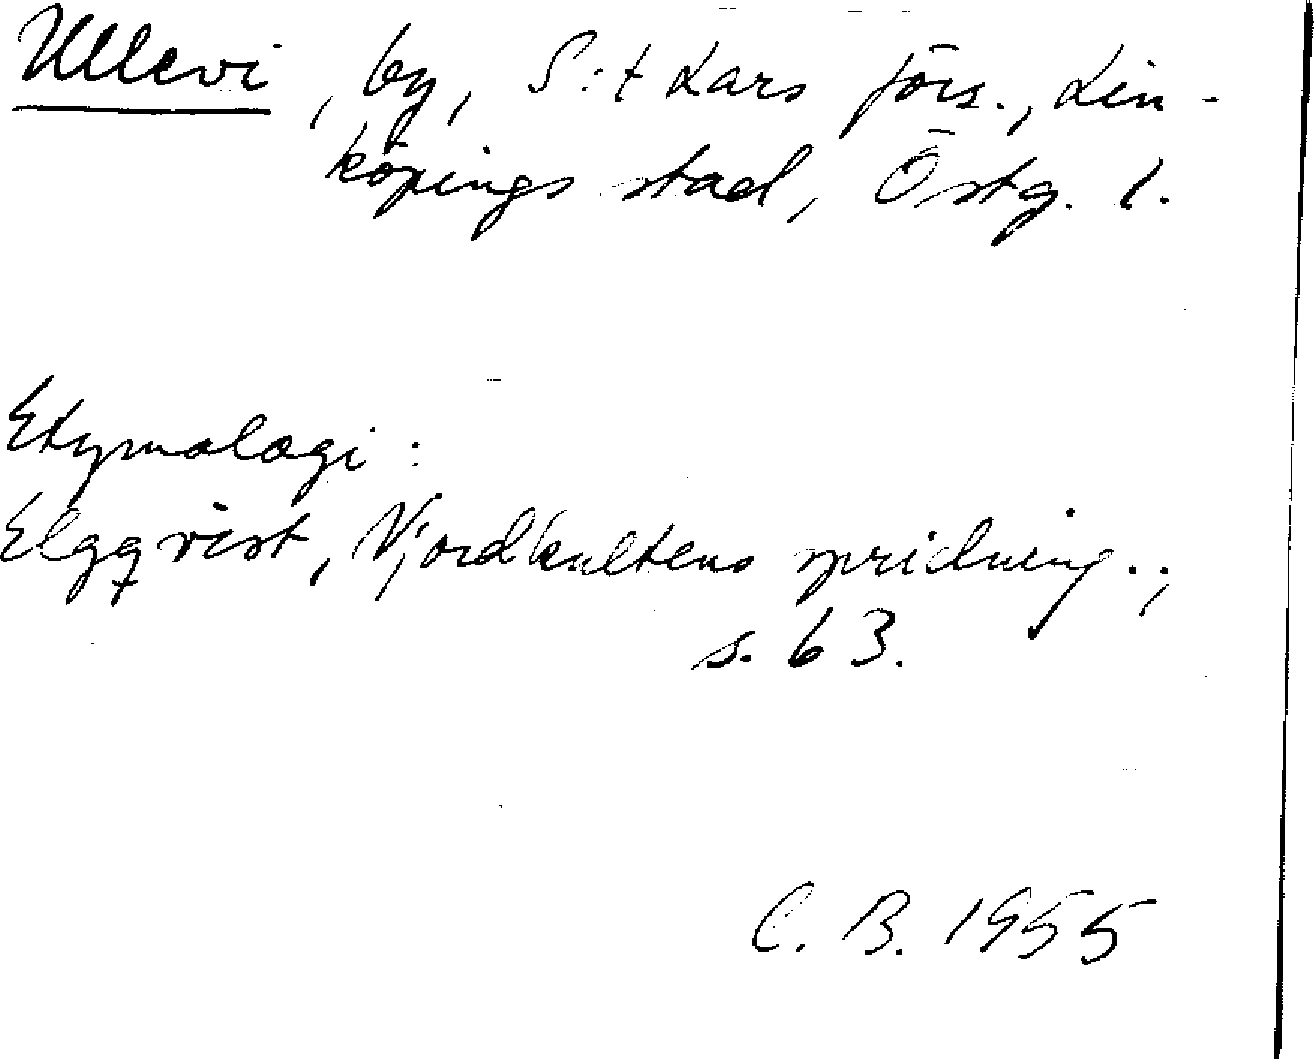 Ullevi, by, S:t Lars förs., Lin-
köpings stad, Östg. l.
Etymologi:
Elgqvist, Njordkultens spridning..,
s. 63.
C. B. 1955